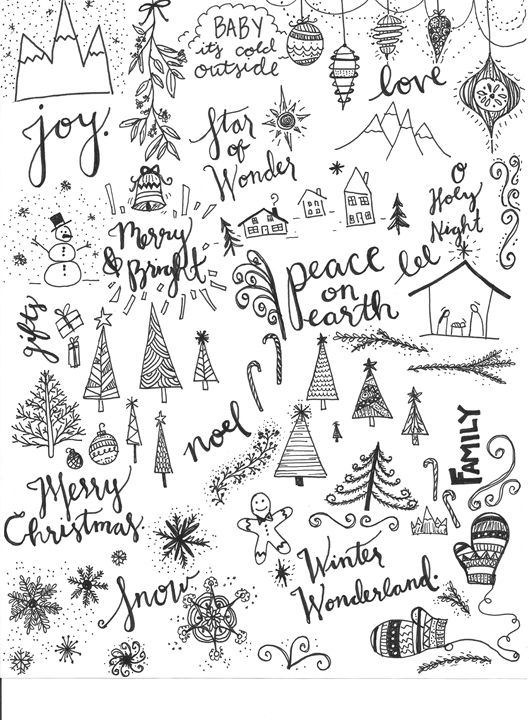 BABY
it's cold
outside
love
joy.
Star
of
Wonder
O
Holy
Night
Merry
& Bright
peace
on
earth
gifts
noel
FAMILY
Merry
Christmas.
Snow
Winter
Wonderland.